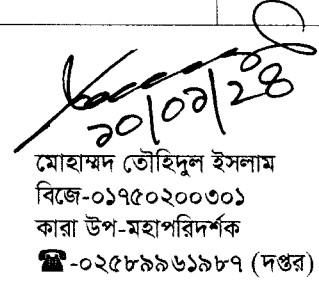 ২০/০৯/২৪
মোহাম্মদ তৌহিদুল ইসলাম
বিজে-০১৭৫০২০০৩০১
কারা উপ-মহাপরিদর্শক
☎-০২৫৮৯৯৬১৯৮৭ (দপ্তর)